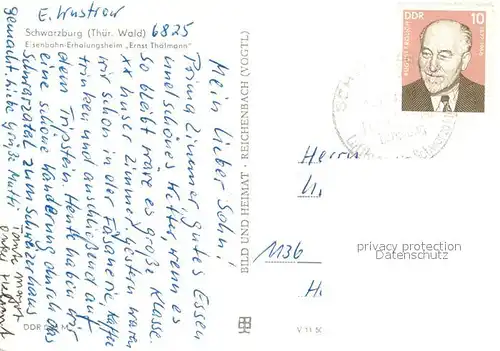 E. Wustrow
Schwarzburg (Thür. Wald) 6825
Eisenbahn-Erholungsheim „Ernst Thälmann"
Mein lieber Sohn!
Prima Zimmer, gutes Essen
und schönes Wetter, wenn es
so bleibt wäre es große Klasse.
xx unser Zimmer, gestern waren
wir schon in der Fasanerie, Kaffee
trinken und anschließend auf
dem Trippstein. Heute haben wir
eine schöne Wanderung durch das
Schwarzatal zum Schweizerhaus
gemacht. Liebe Grüße Mutti
Tante
Onkel Helmut
DDR
BILD UND HEIMAT · REICHENBACH (VOGTL)
V 11 50
DDR
10
Herrn
1136
privacy protection
Datenschutz